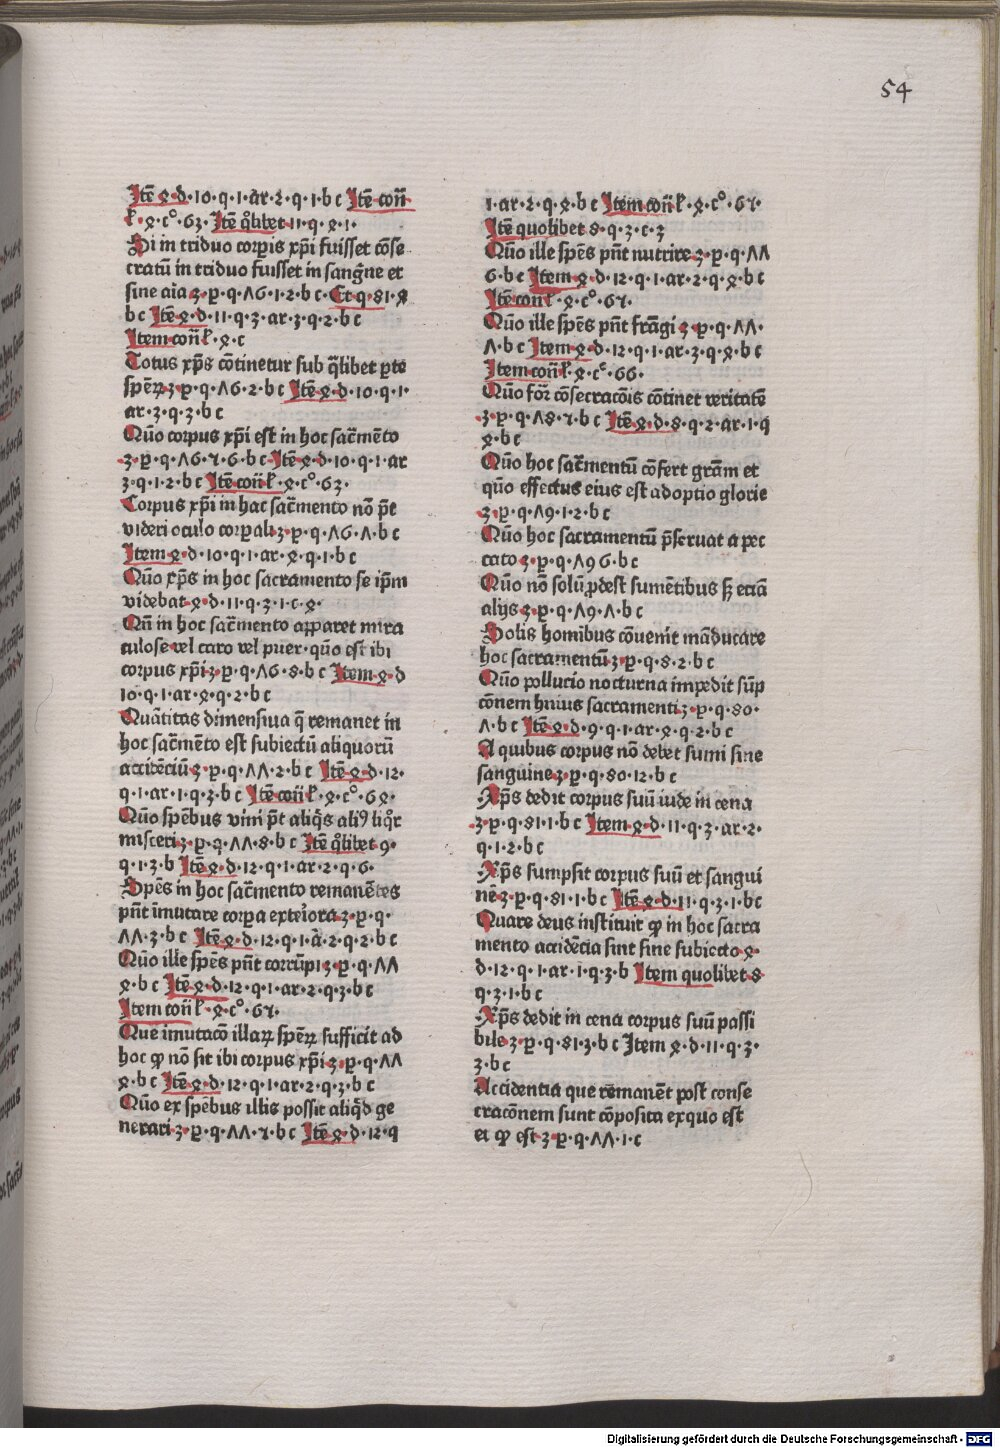 54
Itē ꝝ·d·10·q·1·ar·2·q·1·b c Itē con̄
ł·ꝝ·c°·63·Itē q̊libet·11·q·ꝝ·1·
Si in triduo corꝑis xp̄i fuisset cōse
cratū in triduo fuisset in sanḡne et
sine aīa 3·ꝑ·q·Λ6·1·2·b c·Et q·81·8
b c Itē·ꝝ·d·11·q·3·ar·3·q·2·b c
Item con̄ ł·ꝝ·c
Totus xp̄s cōtinetur sub q̄libet ꝑte
speꝝ 3·ꝑ·q·Λ6·2·b c Itē·ꝝ·d·10·q·1·
ar·3·q·3·b c
Quō corpus xp̄i est in hoc sac̄mēto
3·ꝑ·q·Λ6·7·6·b c Itē·ꝝ·d·10·q·1·ar
3·q·1·2·b c Itē con̄ ł·ꝝ·c°·63·
Corpus xp̄i in hac sac̄mento nō p̄t
videri oculo corꝑali 3·ꝑ·q·Λ6·Λ·b c
Item·ꝝ·d·10·q·1·ar·ꝝ·q·1·b c
Quō xp̄s in hoc sacramento se ip̄m
videbat·ꝝ·d·11·q·3·1·c·ꝝ·
Qn̄ in hoc sac̄mento apparet mira
culose vel caro vel puer·quō est ibi
corpus xp̄i 3·ꝑ·q·Λ6·8·b c Item·ꝝ·d
10·q·1·ar·ꝝ·q·2·b c
Quātitas dimensiua q̄ remanet in
hoc sac̄mēto est subiectū aliquorū
accidēciū 3·ꝑ·q·ΛΛ·2·b c Itē·ꝝ·d·12·
q·1·ar·1·q·3·b c Itē con̄ ł·ꝝ·c°·6ꝝ·
Quō spēbus vini p̄t aliq̄s aliꝰ liq̊r
misceri 3·ꝑ·q·ΛΛ·8·b c Itē q̊libet 9·
q·1·3·b Itē·ꝝ·d·12·q·1·ar·2·q·6·
Spēs in hoc sac̄mento remanētes
pn̄t īmutare corꝑa exteriora 3·ꝑ·q·
ΛΛ·3·b c Itē·ꝝ·d·12·q·1·ar·2·q·2·b c
Quō ille spēs pn̄t corrūpi 3·ꝑ·q·ΛΛ
ꝝ·b c Itē·ꝝ·d·12·q·1·ar·2·q·3·b c
Item con̄ ł·ꝝ·c°·67·
Que īmutacō illaꝝ speꝝ sufficit ad
hoc ꝙ nō sit ibi corpus xp̄i 3·ꝑ·q·ΛΛ
ꝝ·b c Itē·ꝝ·d·12·q·1·ar·2·q·3·b c
Quō ex spēbus illis possit aliq̄d ge
nerari 3·ꝑ·q·ΛΛ·7·b c Itē·ꝝ·d·12·q
1·ar·2·q·ꝝ·b c Item con̄ ł·ꝝ·c°·67·
Itē quolibet 8·q·3·c·3
Quō ille spēs pn̄t nutrire 3·ꝑ·q·ΛΛ
6·b c Item·ꝝ·d·12·q·1·ar·2·q·ꝝ·b c
Itē con̄ ł·ꝝ·c°·67·
Quō ille spēs pn̄t frāgi 3·ꝑ·q·ΛΛ·
Λ·b c Item·ꝝ·d·12·q·1·ar·3·q·ꝝ·b c
Item con̄ ł·ꝝ·c°·66·
Quō for̄ cōsecracōis cōtinet veritatē
3·ꝑ·q·Λ8·7·b c Itē·ꝝ·d·8·q·2·ar·1·q
ꝝ·b c
Quō hoc sac̄mentū cōfert grām et
quō effectus eius est adoptio glorie
3·ꝑ·q·Λ9·1·2·b c
Quō hoc sacramentū p̄seruat a pec
cato 3·ꝑ·q·Λ9 6·b c
Quō nō solū ꝓdest sumētibus sꝫ eciā
alijs 3·ꝑ·q·Λ9·Λ·b c
Solis homībus cōuenit māducare
hoc sacramentū 3·ꝑ·q·8·2·b c
Quō pollucio nocturna impedit sūp
cōnem huius sacramenti 3·ꝑ·q·80·
Λ·b c Itē·ꝝ·d·9·q·1·ar·ꝝ·q·2·b c
A quibus corpus nō debet sumi sine
sanguine 3·ꝑ·q·80·12·b c
Xp̄s dedit corpus suū iude in cena
3·ꝑ·q·81·1·b c Item·ꝝ·d·11·q·3·ar·2·
q·1·2·b c
Xp̄s sumpsit corpus suū et sangui
nē 3·ꝑ·q·81·1·b c Itē·ꝝ·d·11·q·3·1·b c
Quare deus instituit ꝙ in hoc sacra
mento accidēcia sint sine subiecto·ꝝ·
d·12·q·1·ar·1·q·3·b Item quolibet·8·
q·3·1·b c
Xp̄s dedit in cena corpus suū passi
bile 3·ꝑ·q·81·3·b c Item ꝝ·d·11·q·3·
3·b c
Accidentia que remanēt post conse
cracōnem sunt cōposita ex quo est
et ꝙ est 3·ꝑ·q·ΛΛ·1·c
Digitalisierung gefördert durch die Deutsche Forschungsgemeinschaft - DFG